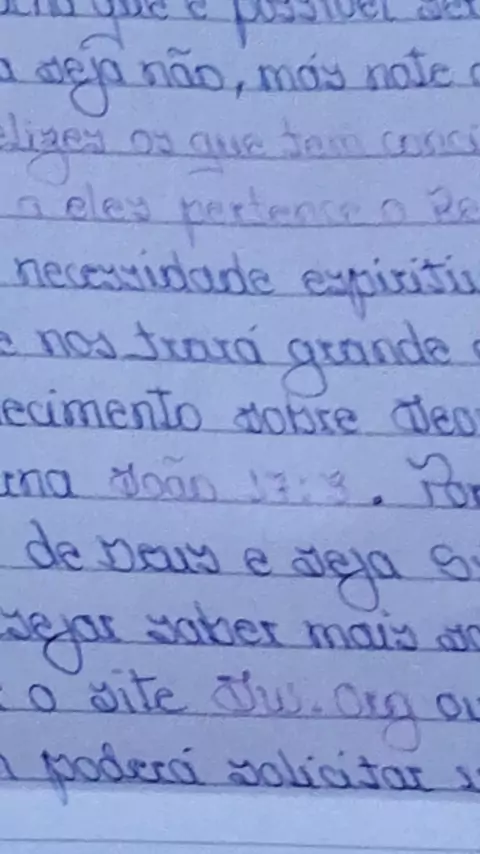 que é possível ser
seja não, mas note
os que tem consci
a eles pertence o Re
necessidade espiritu
e nos trará grande
ecimento sobre Deo
João 17:3. Por
de Deus e seja
sejar saber mais so
o site Jw.org ou
poderá solicitar s